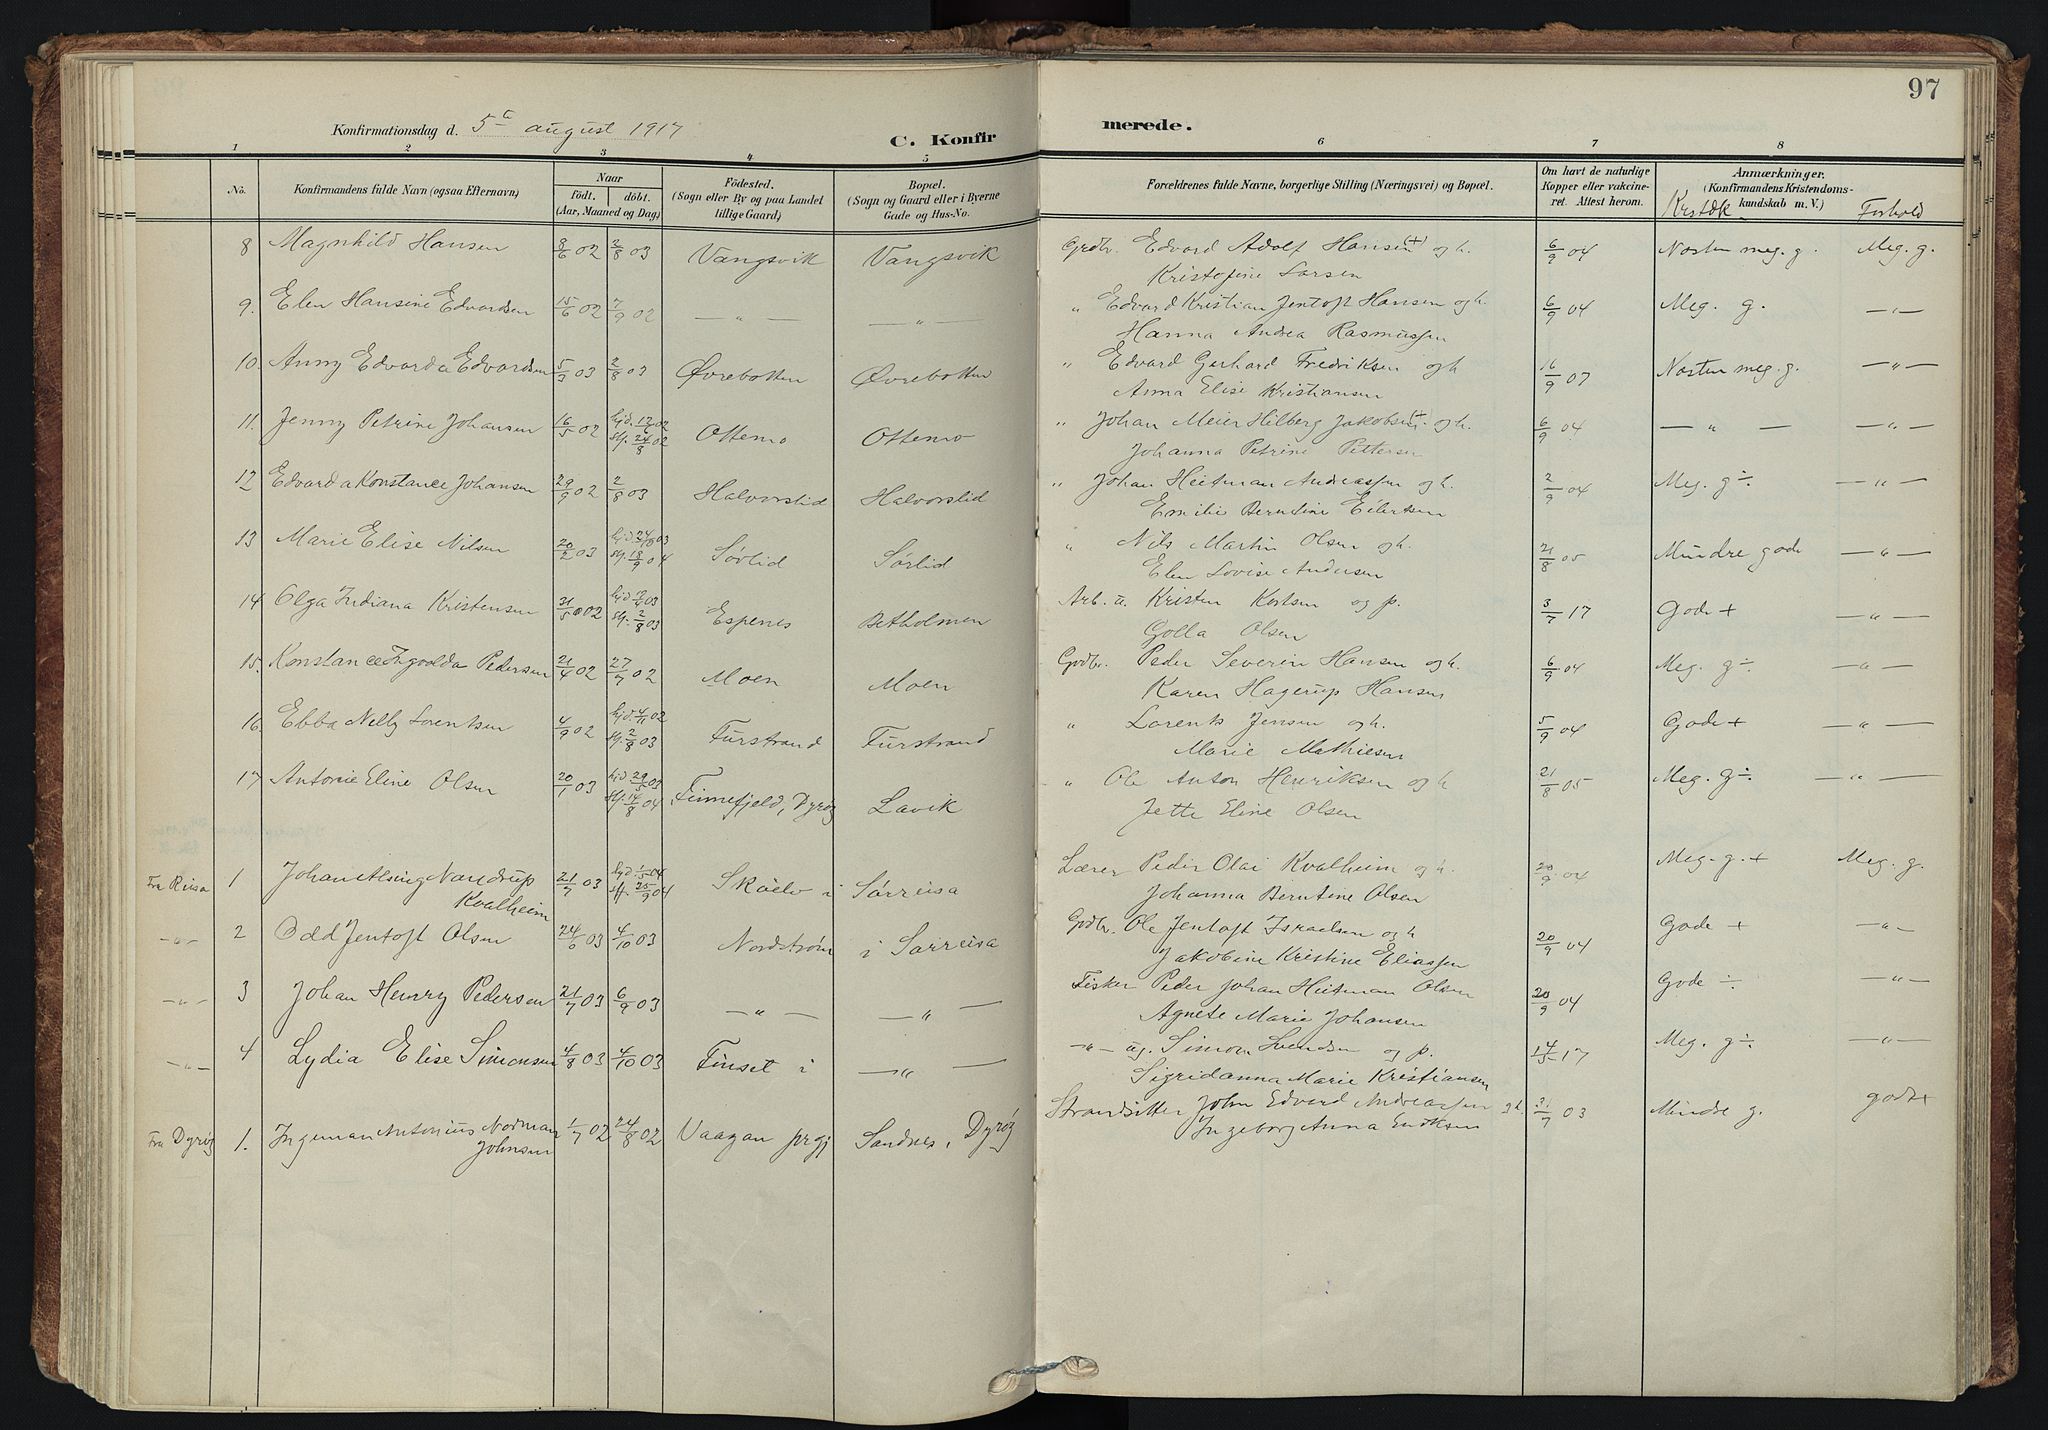 97
Konfirmationsdag d. 5te august 1917
C. Konfirmerede.
1 2 3 4 5 6 7 8
No.
Konfirmandens fulde Navn (ogsaa Efternavn)
Naar
födt. döbt.
(Aar, Maaned og Dag)
Födested.
(Sogn eller By og paa Landet
tillige Gaard)
Bopæl.
(Sogn og Gaard eller i Byerne
Gade og Hus-No.
Forældrenes fulde Navne, borgerlige Stilling (Næringsvei) og Bopæl.
Om havt de naturlige
Kopper eller vakcine-
ret. Attest herom.
Anmærkninger,
(Konfirmandens Kristendoms-
kundskab m. V.)
Krstdk Forhold
8 Magnhild Hansen 8/6 02 2/8 03 Vangsvik Vangsvik Grdbr. Edvard Adolf Hansen (+) og h. 6/9 04 Næsten meg. g. Meg. g.
Kristofine Larsen
9. Elen Hansine Edvardsen 15/6 02 7/9 02 — " — — " — " Edvard Kristian Jentoft Hansen og h. 6/9 04 Meg. g. — " —
Hanna Andrea Rasmussen
10. Anny Edvarda Edvardsen 5/3 03 2/8 03 Øvrebotten Øvrebotten " Edvard Gerhard Fredriksen og h 16/9 07 Næsten meg. g. — " —
Anna Elise Kristiansen
11. Jenny Petrine Johansen 16/5 02 hjd. 12/6 02 Ottemo Ottemo " Johan Meier Hilberg Jakobsen (+) og h. 6/9 04 — " — — " —
stf. 24/8 02 Johanna Petrine Pettersen
12 Edvarda Konstance Johansen 29/9 02 2/8 03 Halvorslid Halvorslid " Johan Heitman Andreassen og h. 2/9 04 Meg. g ÷ — " —
Emilie Berntine Eilertsen
13 Marie Elise Nilsen 20/2 03 hjd. 24/10 03 Sørlid Sørlid " Nils Martin Olsen og h. 21/8 05 Mindre gode — " —
stf. 18/9 04 Elen Lovise Andersen
14 Olga Indiana Kristensen 31/5 02 hjd. 03 Espenes Betholmen Arb. u. Kristen og p. 3/7 17 Gode + — " —
stf. 2/8 03 Golla Olsen
15. Konstance Ingvolda Pedersen 21/4 02 27/7 02 Moen Moen Grdbr. Peder Severin Hansen og h. 6/9 04 Meg. g ÷ — " —
Karen Hagerup Hansen
16. Ebba Nelly Lorentsen 4/9 02 hjd. 4/11 02 Furstrand Furstrand " Lorents Jensen og h. 5/9 04 Gode + — " —
stf. 2/8 03 Marie Mathiesen
17 Antonie Eline Olsen 20/1 03 hjd 29/5 03 Finnefjeld, Dyrøy Lavik " Ole Anton Henriksen og h 21/8 05 Meg. g ÷ — " —
stf. 14/8 04 Jette Eline Olsen
Fra Reisa 1 Johan Alsing Nandrup 21/7 03 hjd. 1/5 04 Skøelv i Sørreisa Lærer Peder Olai Kvalheim og h. 20/9 04 Meg. g. + Meg. g.
Kvalheim stf. 25/9 04 Johanna Berntine Olsen
— " — 2 Odd Jentoft Olsen 24/6 03 4/10 03 Nordstrøm i Sørreisa Grdbr. Ole Jentoft Israelsen og h 20/9 04 Gode + — " —
Jakobine Kristine Eliassen
— " — 3 Johan Henry Pedersen 21/7 03 6/9 03 — " — — " — Fisker Peder Johan Heitman Olsen 20/9 04 Gode ÷ — " —
Agnete Marie Johansen
— " — 4 Lydia Elise Simonsen 4/8 03 4/10 03 Finset i — " — — " — ug. Simon Svendsen og p. 14/5 17 Meg. g ÷ — " —
Sigridanna Marie Kristiansen
Fra Dyrøy 1. Ingeman Antonius Norman 1/7 02 24/8 02 Vaagan prgj Sandnes, Dyrøy Strandsitter John Edvard Andreassen og h. 31/7 03 Mindre g. gode
Johnsen Ingeborg Anna Eriksen